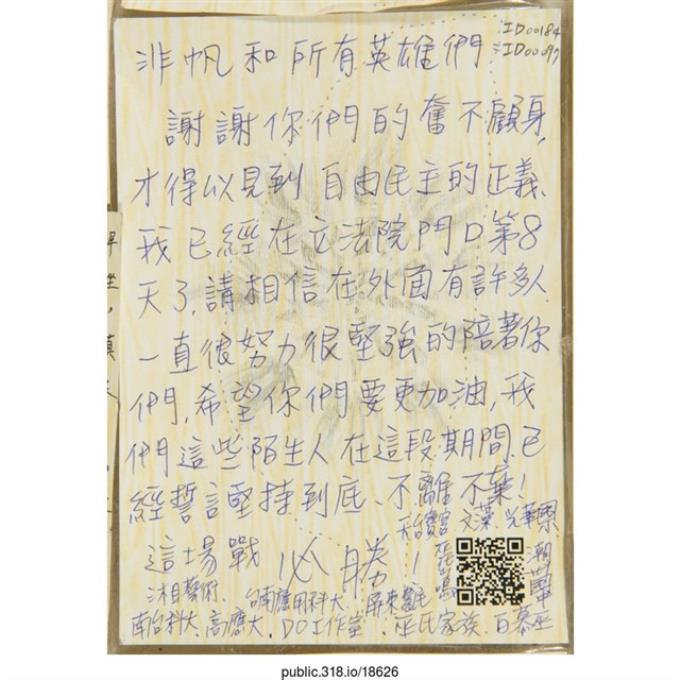 ID00184
ID00097
非帆和所有英雄們
謝謝你們的奮不顧身,
才得以見到自由民主的正義、
我已經在立法院門口第8
天了,請相信在外面有許多人
一直很努力很堅強的陪著你
們,希望你們要更加油,我
們這些陌生人在這段期間、已
經誓言堅持到底、不離不棄!
文藻
這場戰必勝!
台南應用科大、屏東
南台科大、高應大、DO工作室、巫氏家族、百慕巫
public.318.io/18626